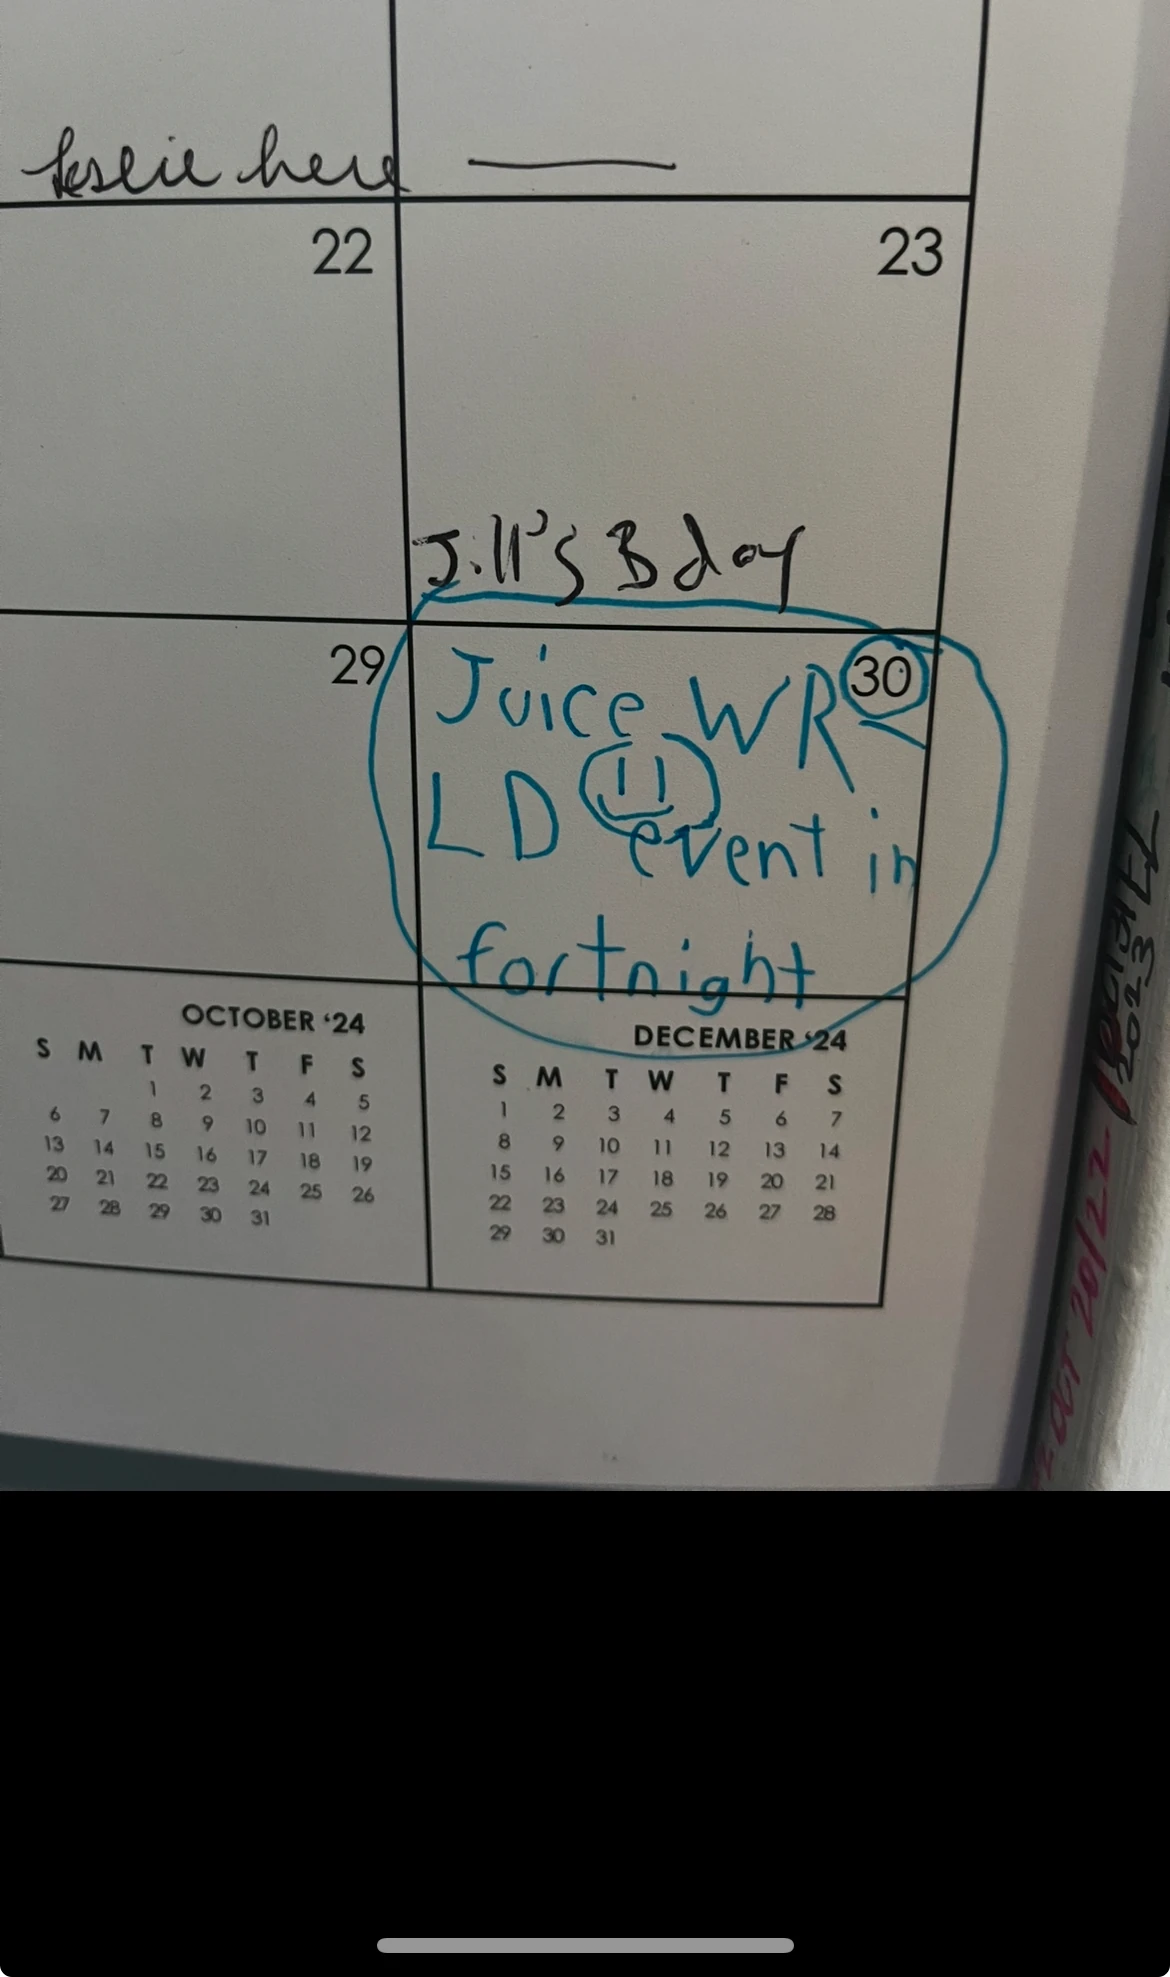 leslie here
22 23
Jill's B day
29 30
Juice WR
LD event in
fortnight
OCTOBER '24
S M T W T F S
1 2 3 4 5
6 7 8 9 10 11 12
13 14 15 16 17 18 19
20 21 22 23 24 25 26
27 28 29 30 31
DECEMBER '24
S M T W T F S
1 2 3 4 5 6 7
8 9 10 11 12 13 14
15 16 17 18 19 20 21
22 23 24 25 26 27 28
29 30 31
2023
OCT 20/22